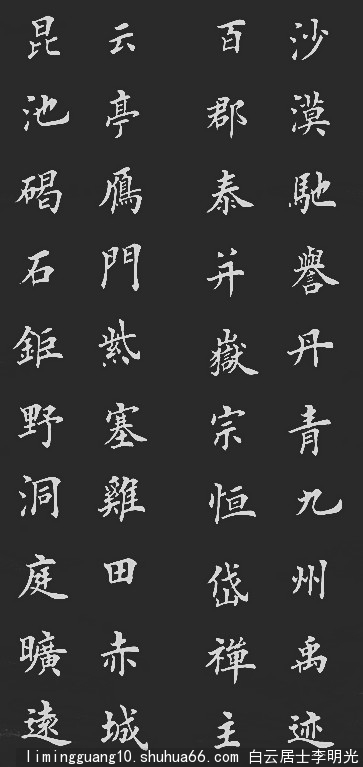 沙漠馳譽丹青九州禹迹
百郡秦并嶽宗恒岱禅主
云亭鴈門紫塞雞田赤城
昆池碣石鉅野洞庭曠遠
limingguang10.shuhua66.com 白云居士李明光